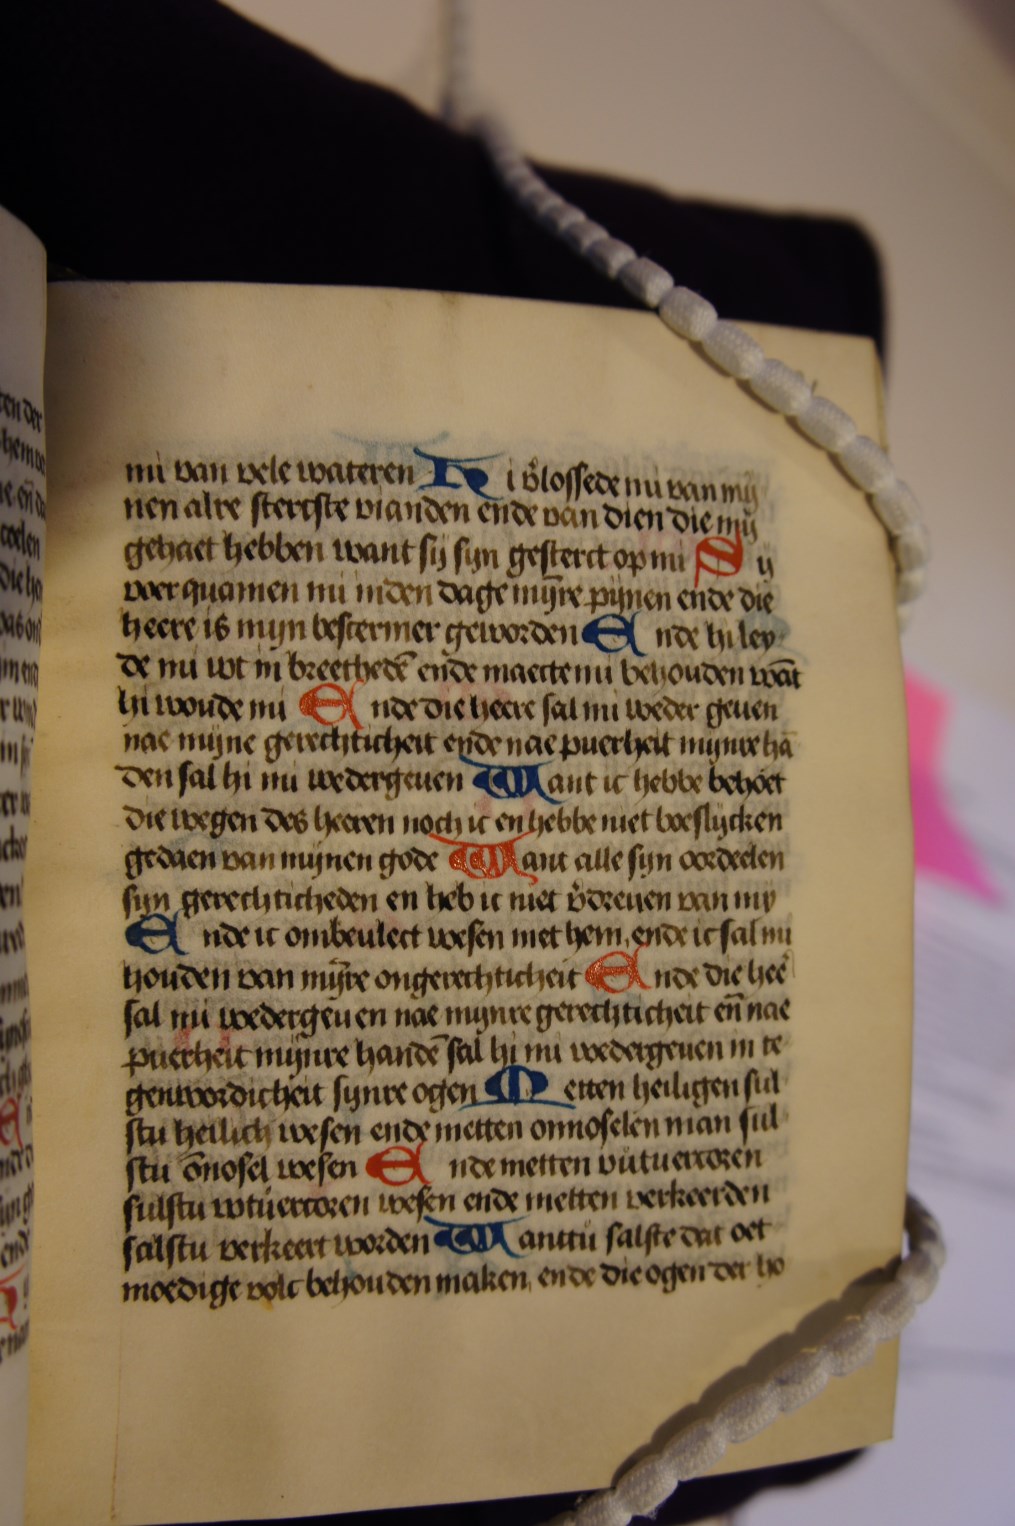 mi van vele wateren Hi v̓lossede mi van my
nen alre stercste vianden ende van dien die mij
gehaet hebben want sij sijn gesterct op mi Sij
voer quamen mi inden dage mijr̄e pijnen ende die
heere is mijn beschermer geworden Ende hi ley
de mi wt in breethedē ende maecte mi behouden wāt
hi woude mi Ende die heere sal mi weder geven
nae mijne gerechticheit ende nae puerheit mijnre hā
den sal hi mi wedergeuen Want ic hebbe behoet
die wegen des heeren noch ic en hebbe niet boeslijcken
gedaen van mijnen gode Want alle sijn oordeelen
sijn gerechticheden en heb ic niet v̓dreuen van my
Ende ic ombeulect wesen met hem, ende ic sal mi
houden van mijr̄e ongerechticheit Ende die heē
sal mi wedergeuen nae mijnre gerechticheit en̄ nae
puerheit mijnre handē sal hi mi wedergeuen in te
genwordicheit sijnre ogen Metten heiligen sul
stu heilich wesen ende metten onnoselen man sul
stu ōnosel wesen Ende metten vutuercoren
sulstu wtuercoren wesen ende metten verkeerden
salstu verkeert worden Want tu salste dat oet
moedige volc behouden maken, ende die ogen der ho